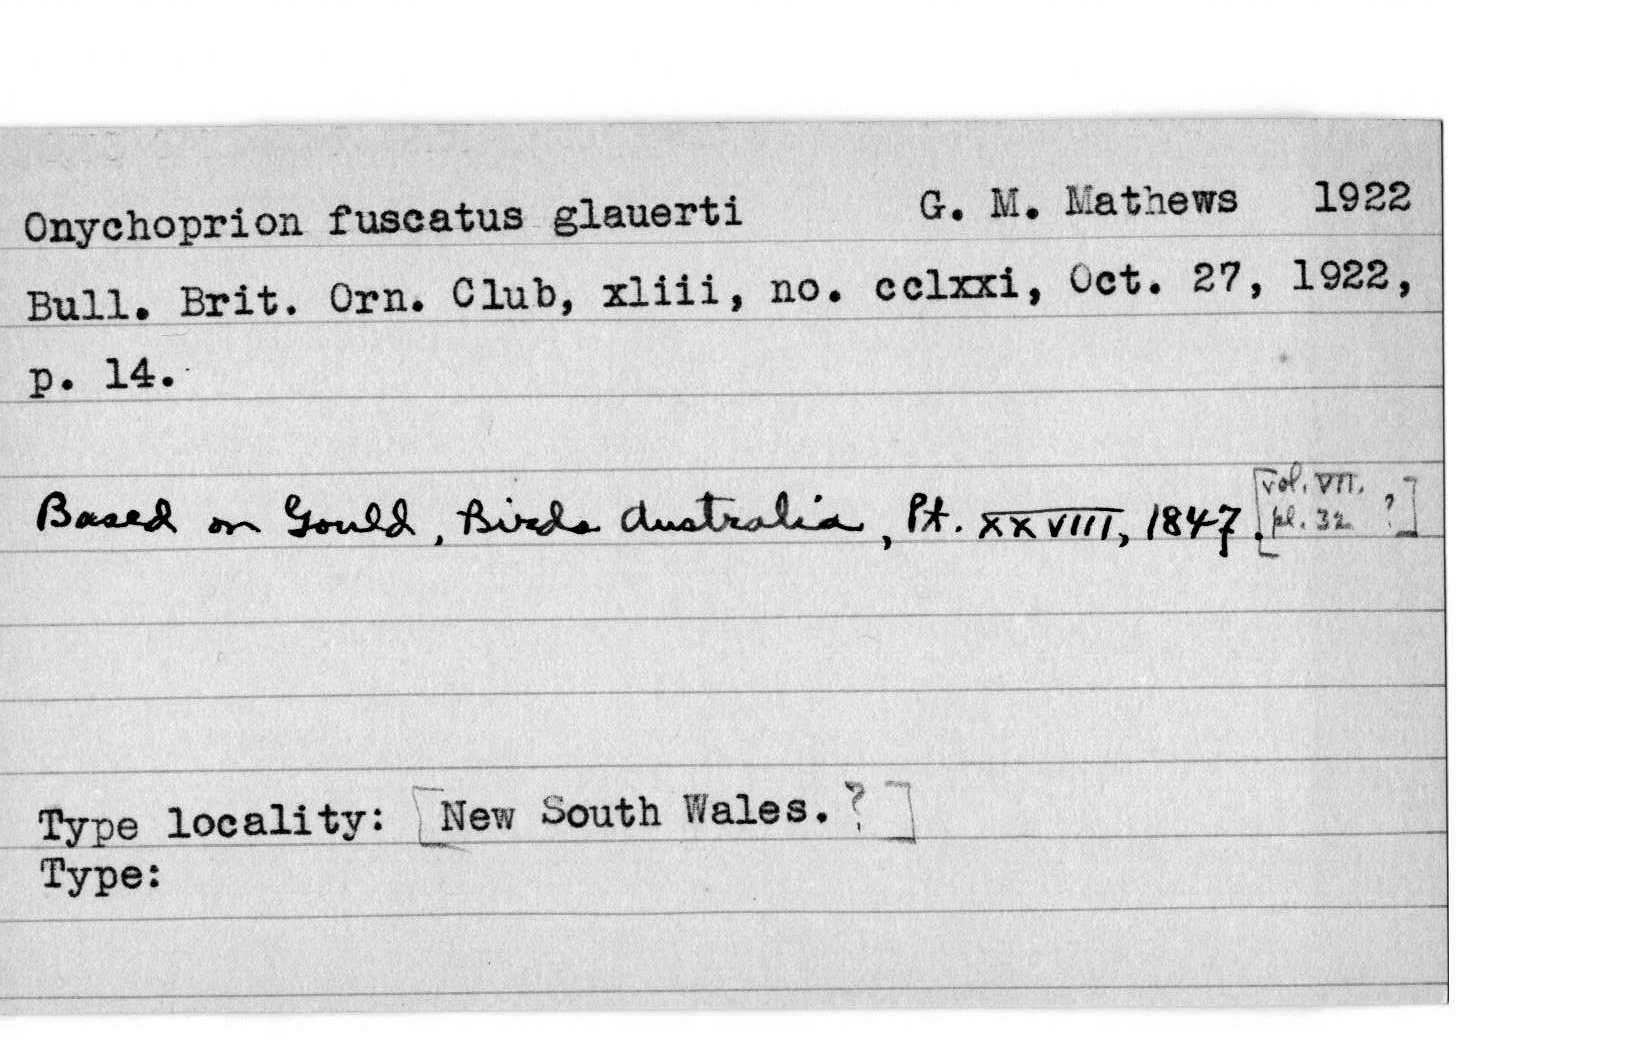 Onychoprion fuscatus glauerti G. M. Mathews 1922
Bull. Brit. Orn. Club, xliii, no. cclxxi, Oct. 27, 1922,
p. 14.
Based on Gould, Birds Australia, Pt. XXVIII, 1847. [vol. VII. pl. 32 ?]
Type locality: [New South Wales. ?]
Type: